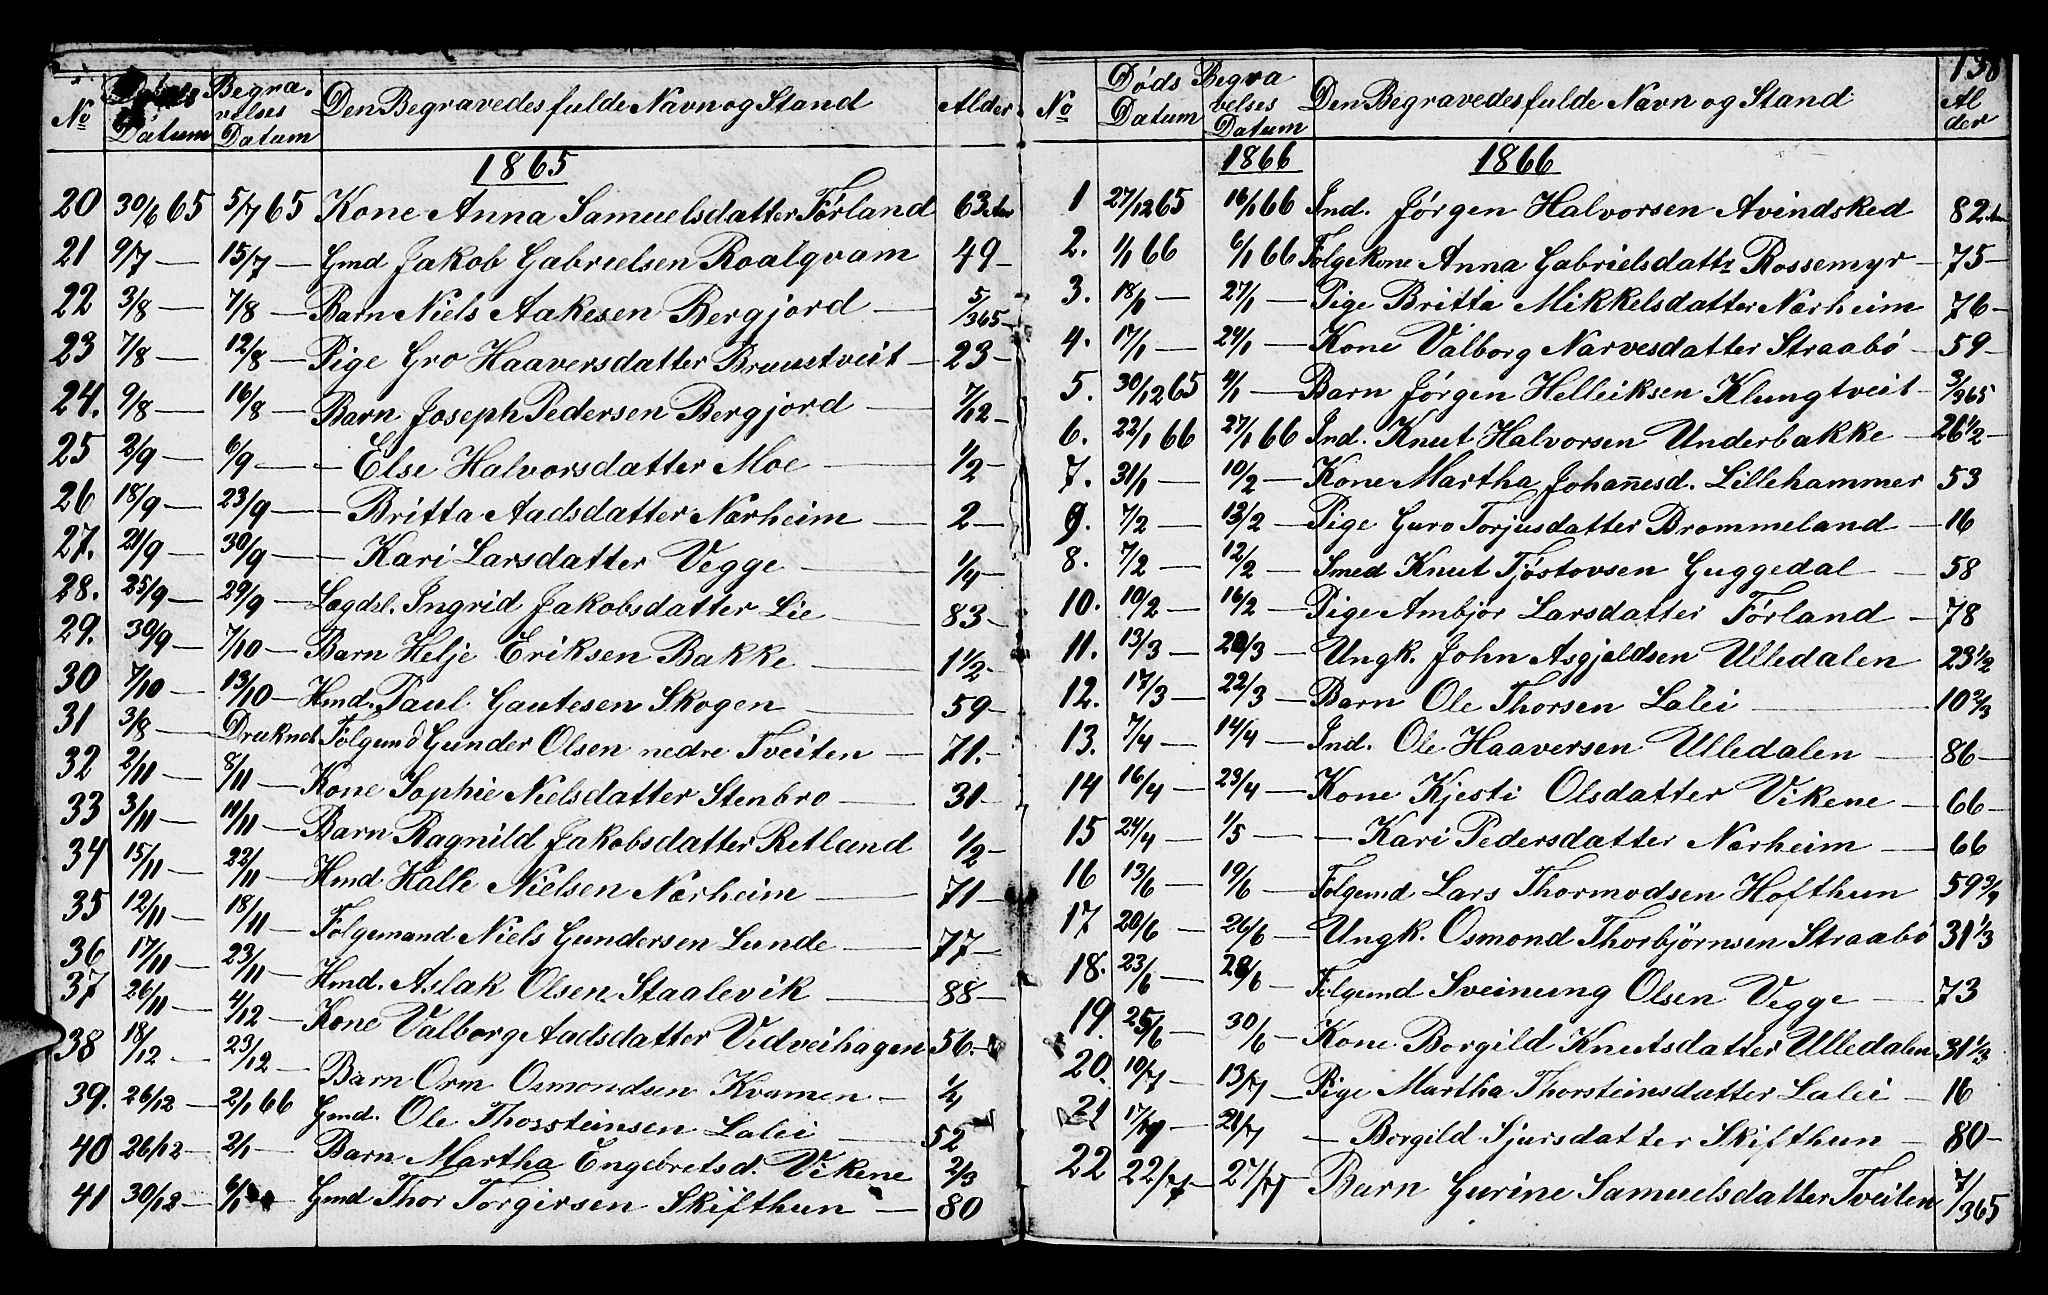 No Døds Datum Begravelses Datum Den Begravedes fulde Navn og Stand Alder
1865
20 30/6 65 5/7 65 Kone Anna Samuelsdatter Førland 63 Aar
21 9/7 — 15/7 — Gmd Jakob Gabrielsen Roalqvam 49 —
22 3/8 — 7/8 — Barn Niels Aakesen Bergjord — 5/365 —
23 7/8 — 12/8 — Pige Gro Haaversdatter Bruustveit — 23 —
24. 9/8 — 16/8 — Barn Joseph Pedersen Bergjord — 7/12 —
25 2/9 — 6/9 — — Else Halvorsdatter Moe — 1/2 —
26 18/9 — 23/9 — — Britta Aadsdatter Nærheim — 2 —
27. 21/9 — 30/9 — — Kari Larsdatter Vegge — 1/4 —
28. 25/9 — 29/9 — Lægdsl. Ingrid Jakobsdatter Lie — 83 —
29. 30/9 — 7/10 — Barn Helje Eriksen Bakke — 1 1/2 —
30 7/10 — 13/10 — Hmd. Paul Gautesen Skogen — 59 —
31 3/8 — Druknet Følgemd Gunder Olsen nedre Tveiten — 71. —
32 2/11 — 8/11 — Kone Sophie Nielsdatter Stenbro — 31 —
33 3/11 — 11/11 — Barn Ragnild Jakobsdatter Retland 1/2 —
34 15/11 — 22/11 — Hmd Kalle Nielsen Nærheim — 71 —
35 12/11 — 18/11 — Følgemand Niels Gundersen Lunde — 77 —
36 17/11 — 23/11 — Hmd. Aslak Olsen Staalevik — 88 —
37 26/11 — 4/12 — Kone Valborg Aadsdatter Vedveihagen 56. —
38 18/12 — 23/12 — Barn Orm Osmondsen Kvamen — 1/4
39. 26/12 — 2/1 66 Gmd. Ole Thorsteinsen Lalei — 52
40 26/12 — 2/1 — Barn Martha Engebretsd. Vikene 2/3
41 30/12 — 6/1 — Gmd Thor Torgirsen Skifthun — 80
138
No Døds Datum Begravelses Datum Den Begravedes fulde Navn og Stand Alder
1866 1866
1 27/12 65 16/1 66 Ind. Jørgen Halvorsen Avindsked 82 Aar
2. 1/1 66 6/1 66 Følgekone Anna Gabrielsdattr Rossemyr — 75 —
3. 18/1 — 27/1 — Pige Britta Mikkelsdatter Nærheim 76 —
4. 17/1 — 24/1 — Kone Valborg Narvesdatter Straabø — 59 —
5. 30/12 65 4/1 — Barn Jørgen Helleiksen Klungtveit — 3/365
6. 22/1 66 27/1 66 Ind. Knut Halvorsen Underbakke — 26 1/2 —
7. 31/1 — 10/2 — Kone Martha Johanesd. Lillehammer 53
9. 7/2 — 13/2 — Pige Guro Torjusdatter Brommeland — 16
8. 7/2 — 12/2 — Smed Knut Tjøstovsen Guggedal — 58
10. 10/2 — 16/2 — Pige Ambjør Larsdatter Førland — 78
11. 13/3 — 20/3 — Ungk. John Asgjeldsen Ulledalen 23 1/2
12. 17/3 — 22/3 — Barn Ole Thorsen Lalei — 10 2/3
13. 7/4 — 14/4 — Ind. Ole Haaversen Ulledalen — 86 —
14 16/4 — 23/4 — Kone Kjesti Olsdatter Vikene — 66 —
15 24/4 — 1/5 — — Kari Pedersdatter Nærheim — 66
16 13/6 — 19/6 — Følgemd Lars Thormodsen Hofthun 59 3/4
17 20/6 — 26/6 — Ungk. Osmond Thorbjørnsen Straabø 31 1/3
18. 23/6 — 28/6 — Følgemd Sveinung Olsen Vegge — 73
19. 25/6 — 30/6 — Kone Borgild Knutsdatter Ulledalen 31 1/3
20. 10/7 — 13/7 — Pige Martha Thorsteinsdatter Lalei — 16
21 17/7 — 21/7 — Borgild Sjursdatter Skifthun — 80 —
22 22/7 — 27/7 — Barn Gurine Samuelsdatter Tveiten 7/365